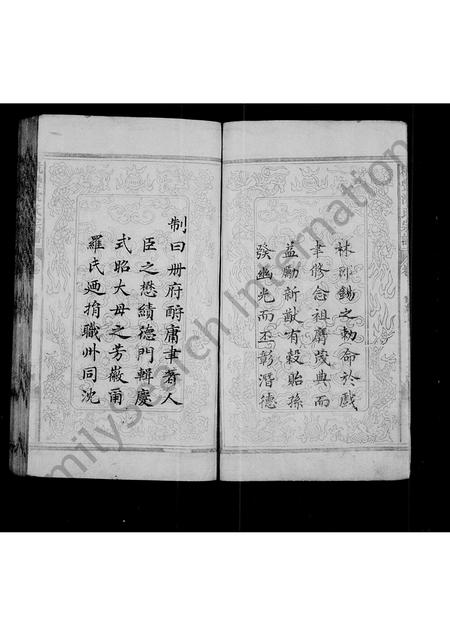 林郎錫之勅命於戲
聿修念祖膺茂典而
益勵新猷有穀貽孫
發幽光而丕彰潛德
制曰冊府酧庸聿著人
臣之懋績德門輯慶
式昭大母之芳薇爾
羅氏廼捐職州同沈
FamilySearch International